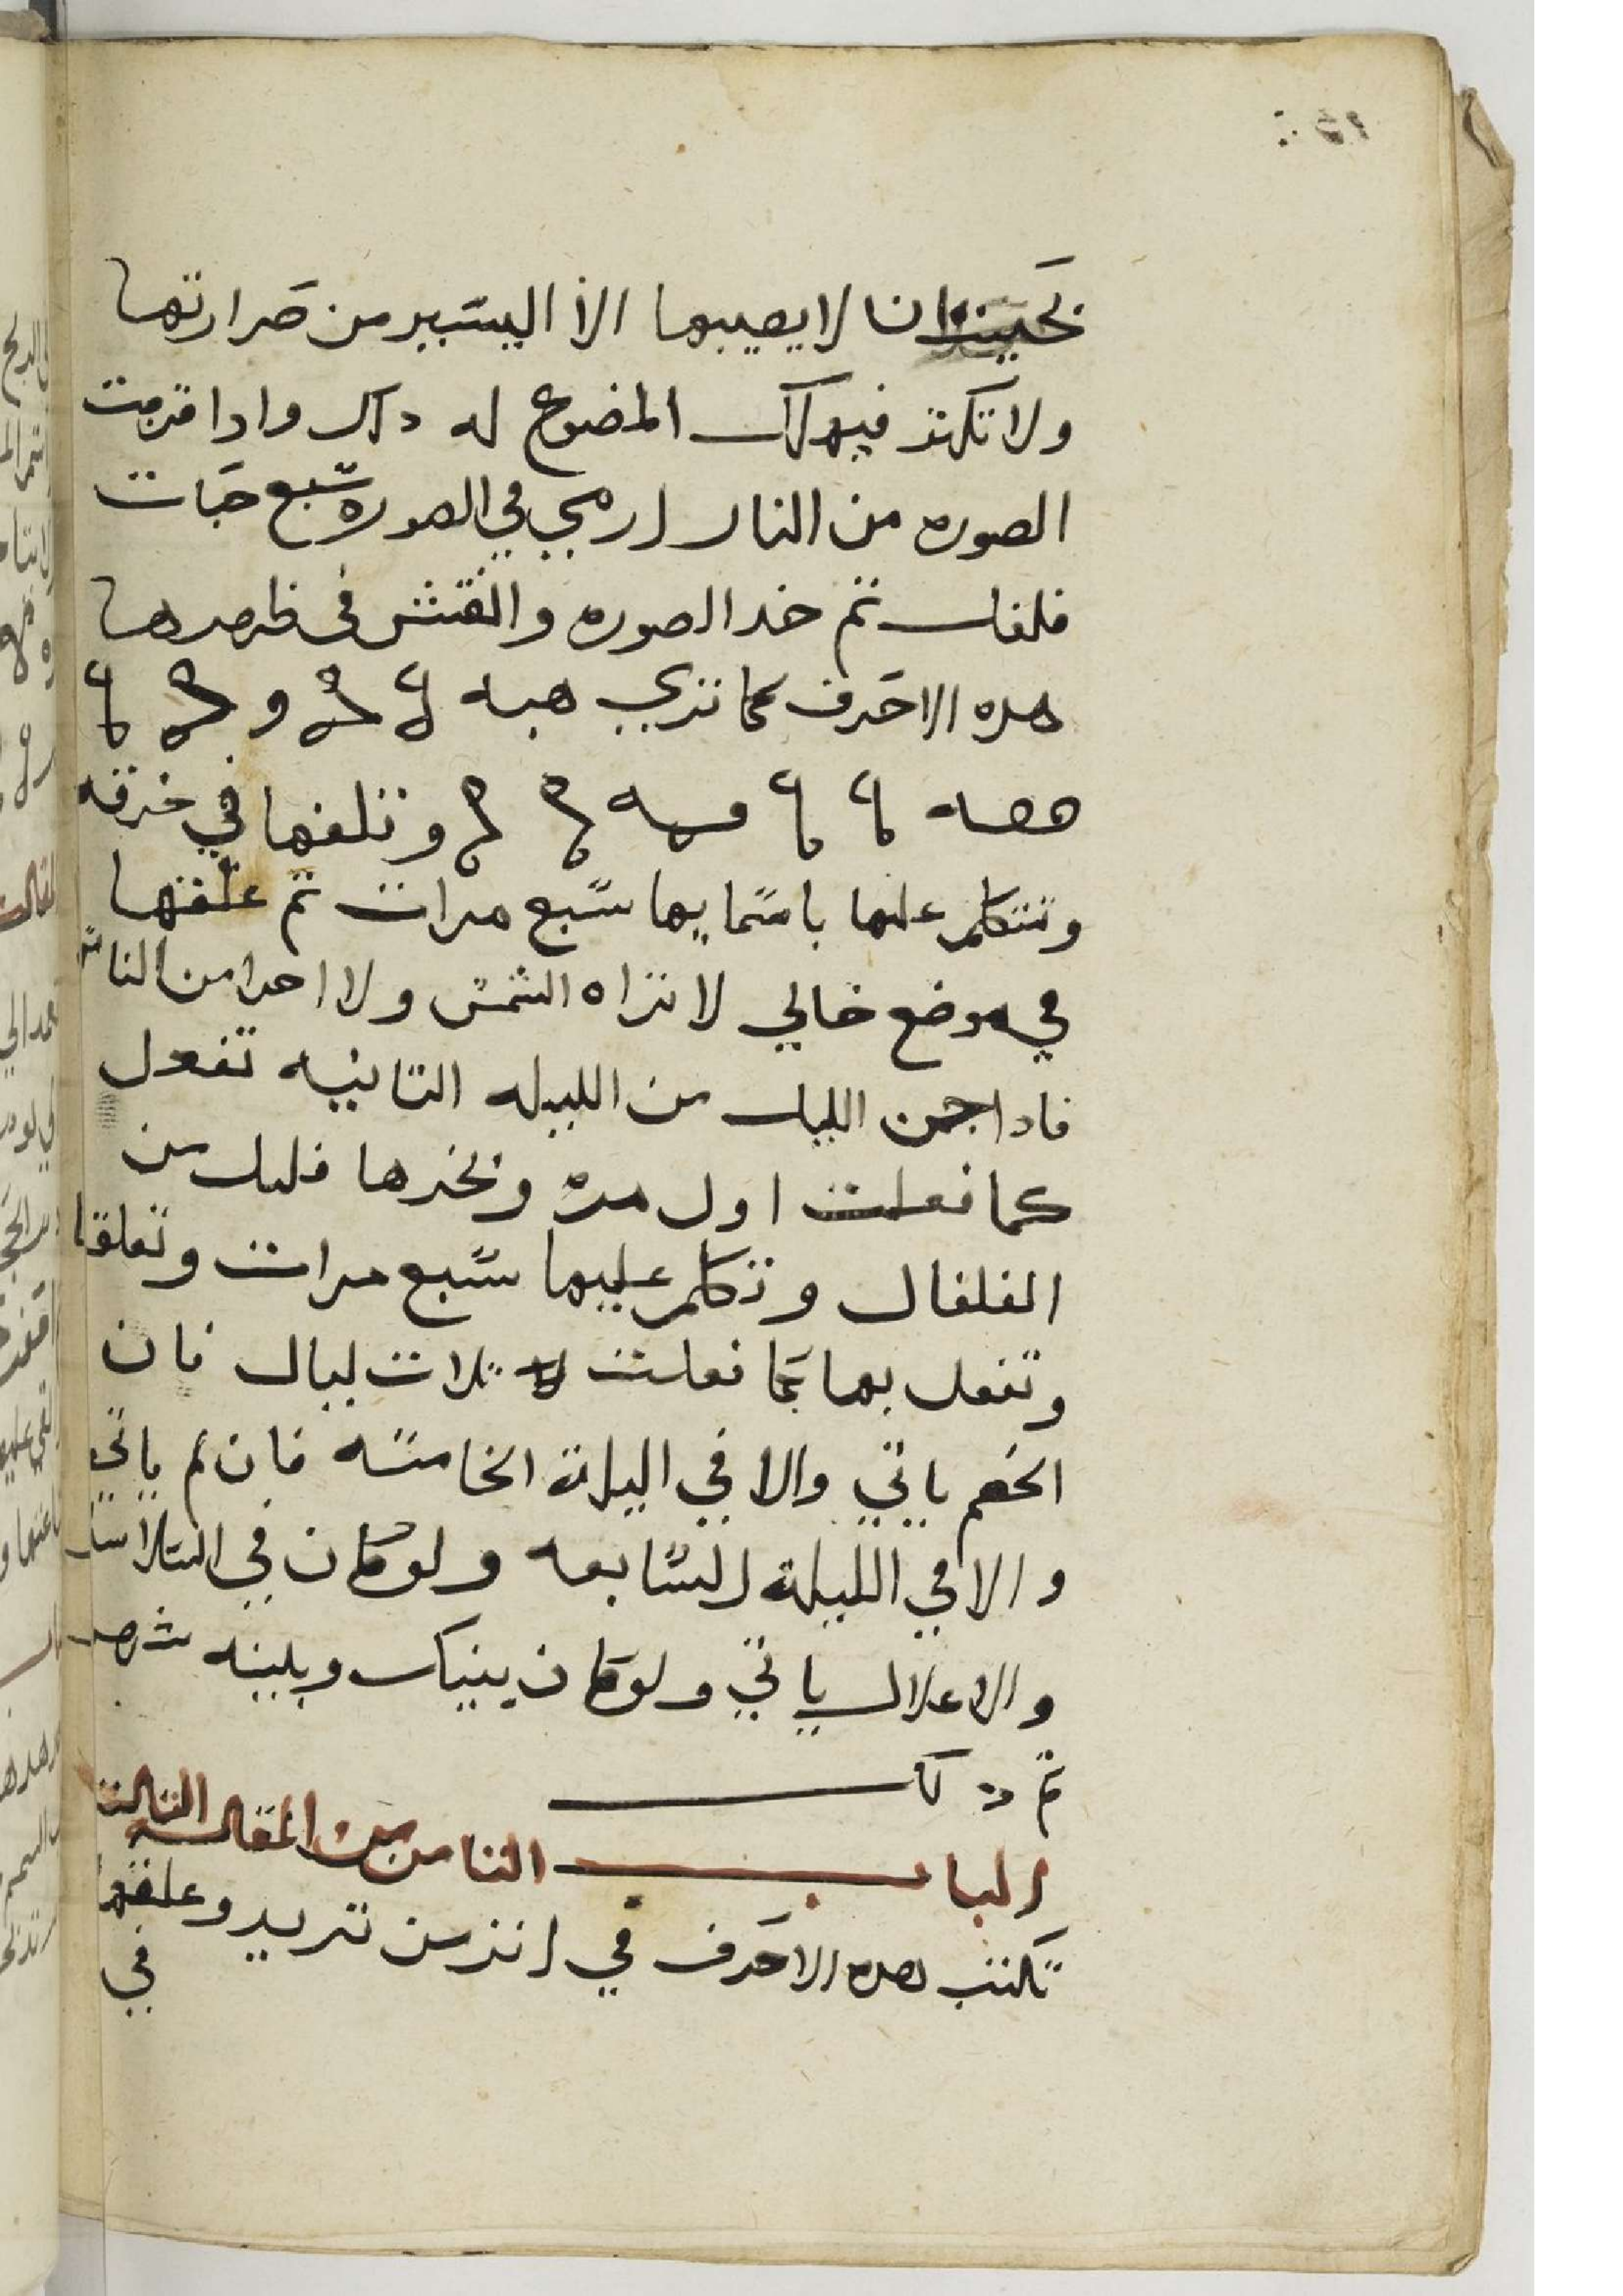 بحيث ان لا يصيبها الا اليسير من حرارتها
ولا تكتر فيهلك المضوع له دلك وادا قربت
الصوره من النار ارمي في الصوره سبع حبات
فلفل تم خد الصوره وانقش في ظهرها
هده الاحرف كما تري هبه و
ههه وتلفها في خرقه
وتتكلم عليها باسمايها سبع مرات تم علقها
في موضع خالي لا تراه الشمس ولا احدا من الناس
فادا جن الليل من الليله التانيه تفعل
كما فعلت اول مره وبخرها قليل من
الفلفال وتكلم عليها سبع مرات وتعلقا
وتفعل بها كما فعلت تلات ليال فان
الخصم ياتي والا في اليلة الخامسه فان لم ياتي
والا في الليلة السابعه ولو كان في السلاسل
والاغلال ياتي ولو كان بينك وبينه شهر
تم دلك
الباب التامن من المقاله التالته
تكتب هده الاحرف في اتر من تريد وعلقها
في